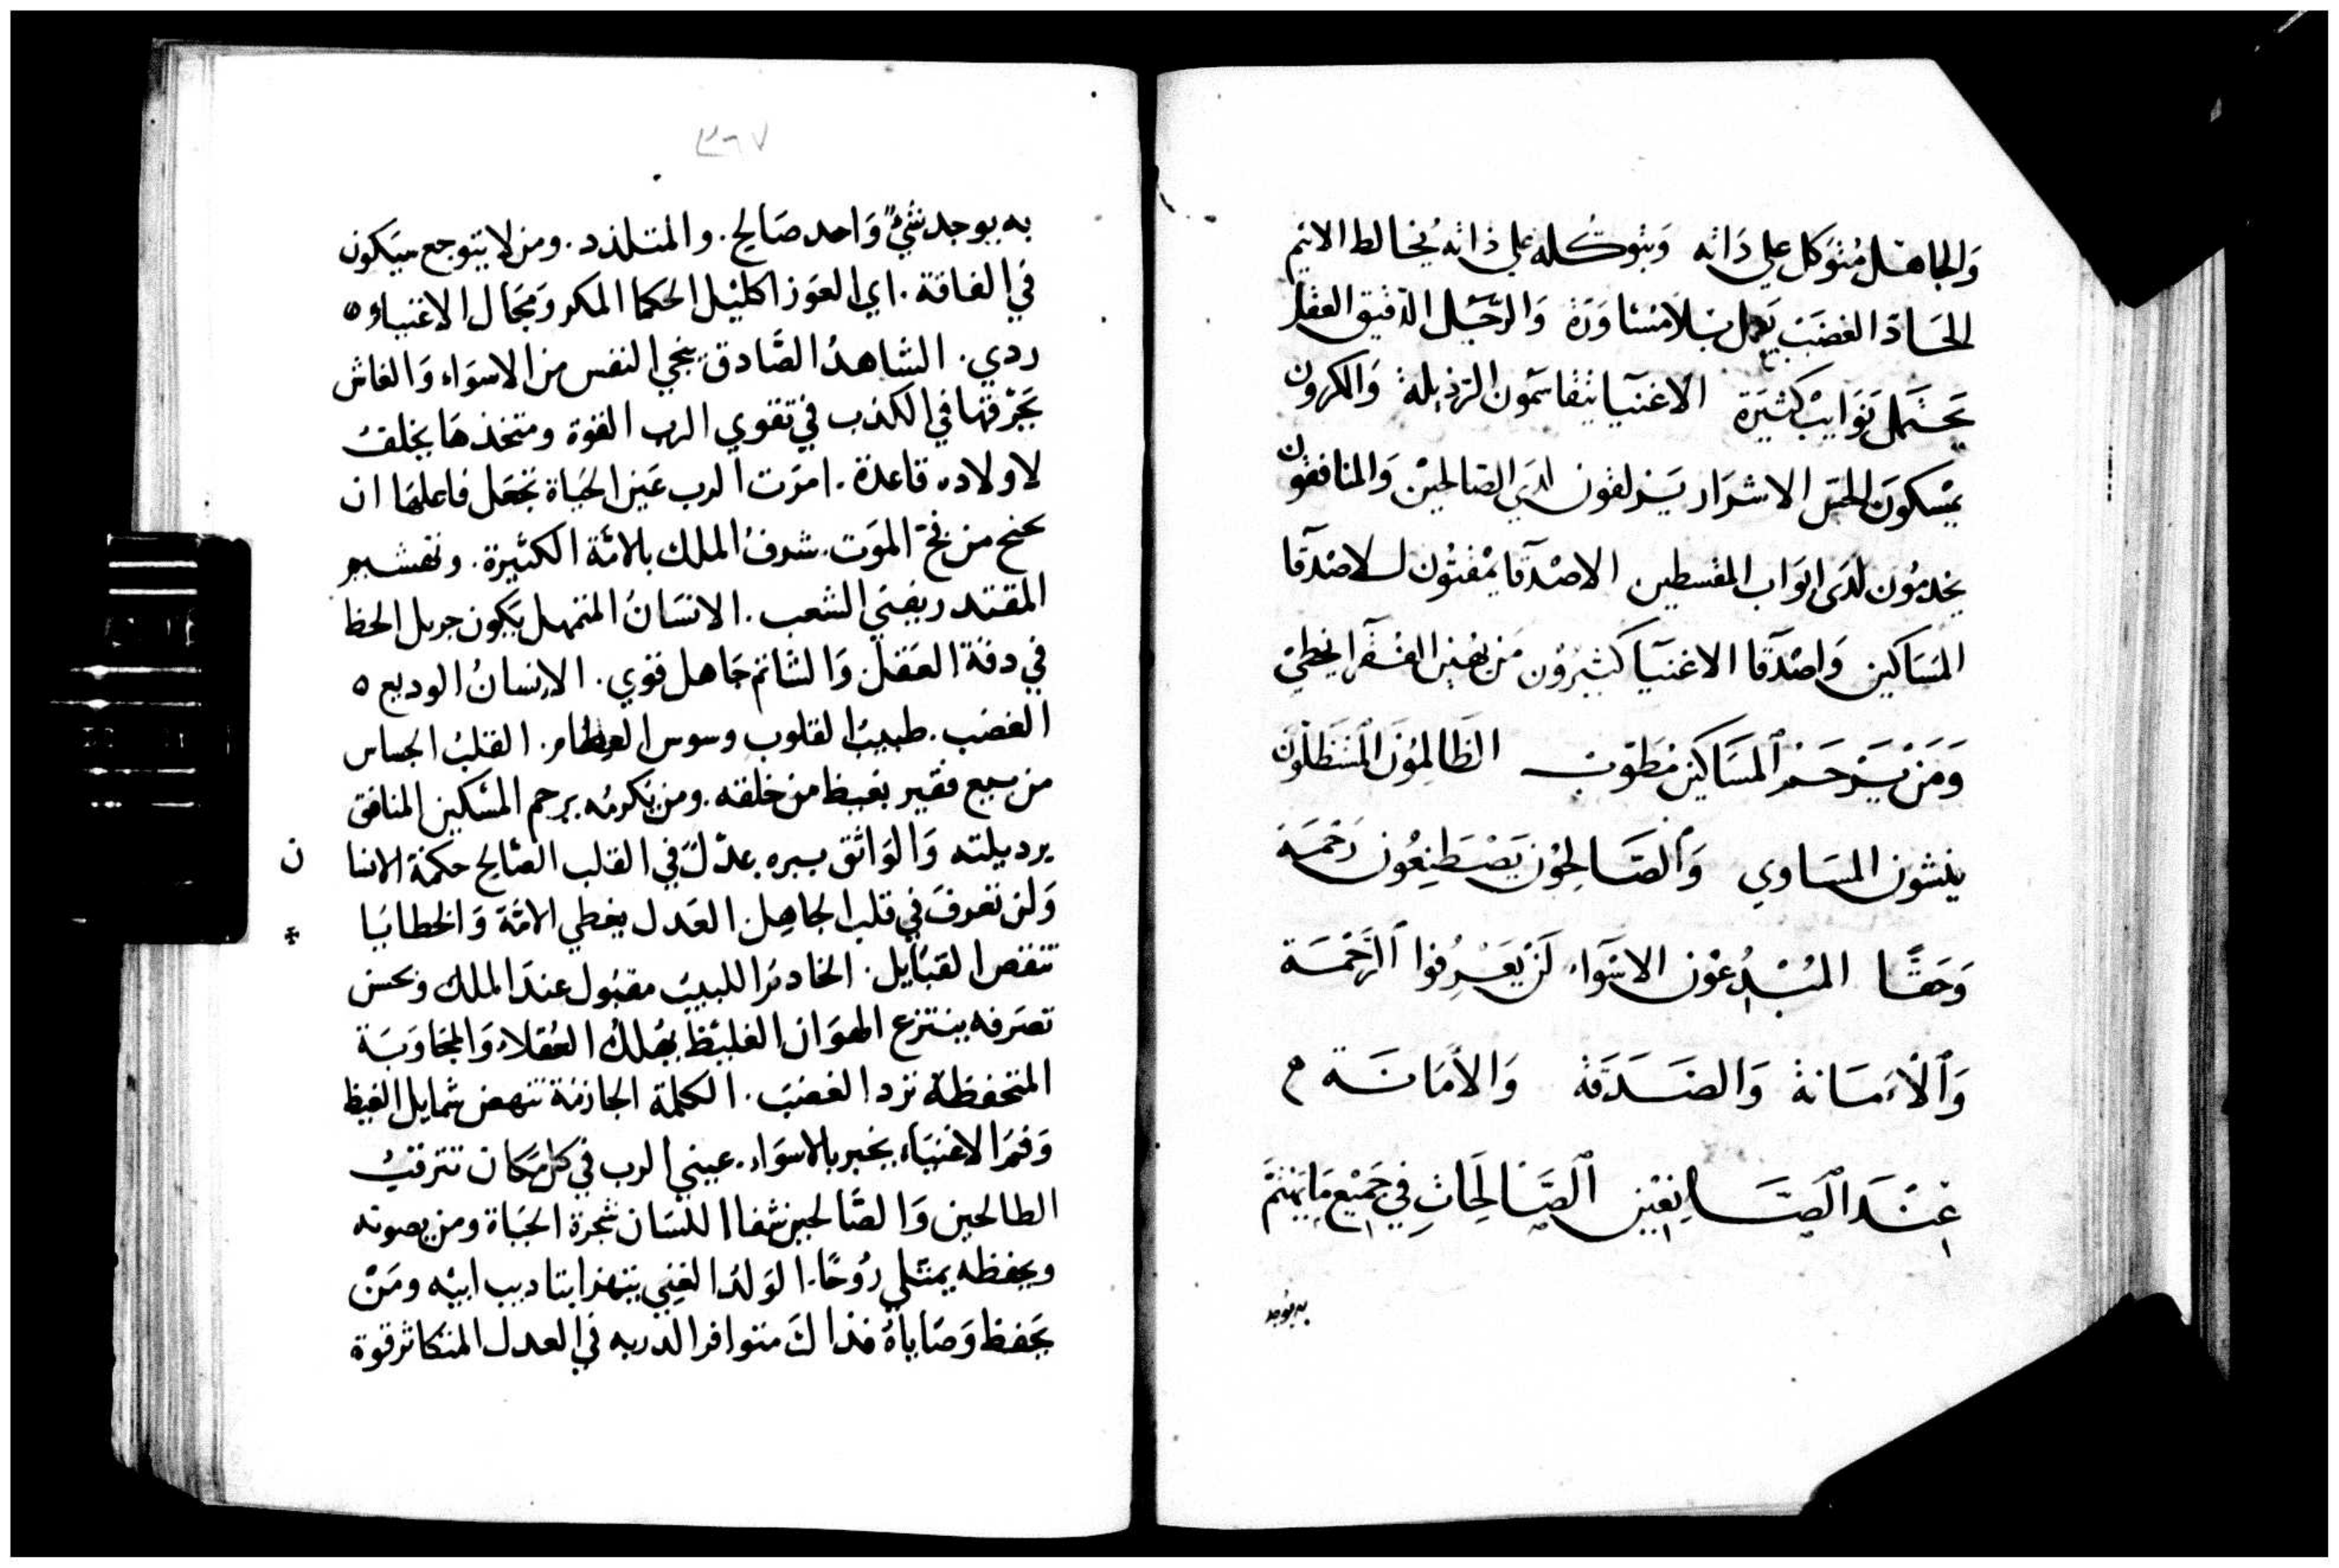 وَالجاهل مُتوَكل علي ذاته وَبتوكله علي ذاته يُخالط الاثيم
الحَادّ الغضَبَ يعمل بلا مشاورَة وَالرّجُل الدّقيق العقل
يَحتمل نوَايبْ كثيرَة الاغنيآ يتقاسمون الرّذيله وَالمكرون
يمْسكون الحس الاشرَار يَزلفون لدَي الصّالحيْن وَالمنافقون
يخدمُون لدَي ابوَاب المقسطين الاصْدقآ يمْقتُون للاصْدقآ
المَسَاكين وَاصْدقآ الاغنيآ كثيرُون مَن يهين الفقرآ يخطي
وَمَنْ يَرحَمْ المسَاكين مَطوّب الظالِمُونَ المُسْتظلون
ينشون المسَاوي وَالصّالحُون يَصْطنِعُون رَحْمَة
وَحَقًا المُبْدُعُون الاسوَآء لَنْ يَعْرِفوا الرَّحْمَة
وَالأمَانة وَالصَدَقة وَالأمَانَة م
عِنْدَ الصَّانِعِيْنِ الصَّالِحَاتِ فِي جَمِيْع مَا يَهْتم
به يوجد
٣٦٧
به يوجد شيءٌ وَاحد صَالح. والمتلذد. ومن لا يتوجع سيَكون
في الفاقة. اي العوَز اكليْل الحكما المكر وَمجَال الاغنياء ه
ردي. الشاهدُ الصَّادق ينجي النفس من الاسوَاء وَالغاش
يَحْرقها في الكذب في تقوي الرب القوة ومتخذهَا يخلفُ
لاولاده قاعدة. امرَت الرب عَين الحيَاة تجعَل فاعلهَا ان
يجنح من فخ المَوَت. شرفُ الملك بالامّة الكثيرة. وتقشير
المقتدر يفنَي الشعب. الانسَانُ المتمهل يَكون جزيل الحظ
في دقة العَقل وَالشاتم جَاهل قوي. الانسانُ الوديع ه
الغضب. طبيبُ القلوب وسوس العظام. القلبُ الحساس
من سبع فقير يغيظ من خلقه. ومن يكرمُه يرحم المسْكين المنافق
يرديلته وَالوَاثق ببره عدْل في القلب الصّالح حكمَة الانسا
ن
وَلن تعرفَ في قلب الجاهل. العَدل يخطي الامّة وَالخطايَا
تنقص القبَايل. الخادمُ اللبيبُ مقبُول عندَ الملك وبحسن
تصَرفه ينتزع الهوَان الغليْظ يهْلك العُقلاء وَالمجَاوَبَة
المتحفظة تزد الغضبَ. الكلمَة الجازمة تنهض شمايل الغيظ
وَفمَ الاغنيَاء يخبر بالاسوَاء. عيني الرب في كل مَكان تترقبُ
الطالحين وَالصَّالحين شفاا اللسَان شجرة الحيَاة ومن يصونه
ويحفظه يمتلي رُوحًا. الوَلدُ الغبي يتهذا بتاديب ابيْه ومَنْ
يحَفظ وَصَاياهُ فذاكَ متوافر الدربه في العدل المتكاثر قوة